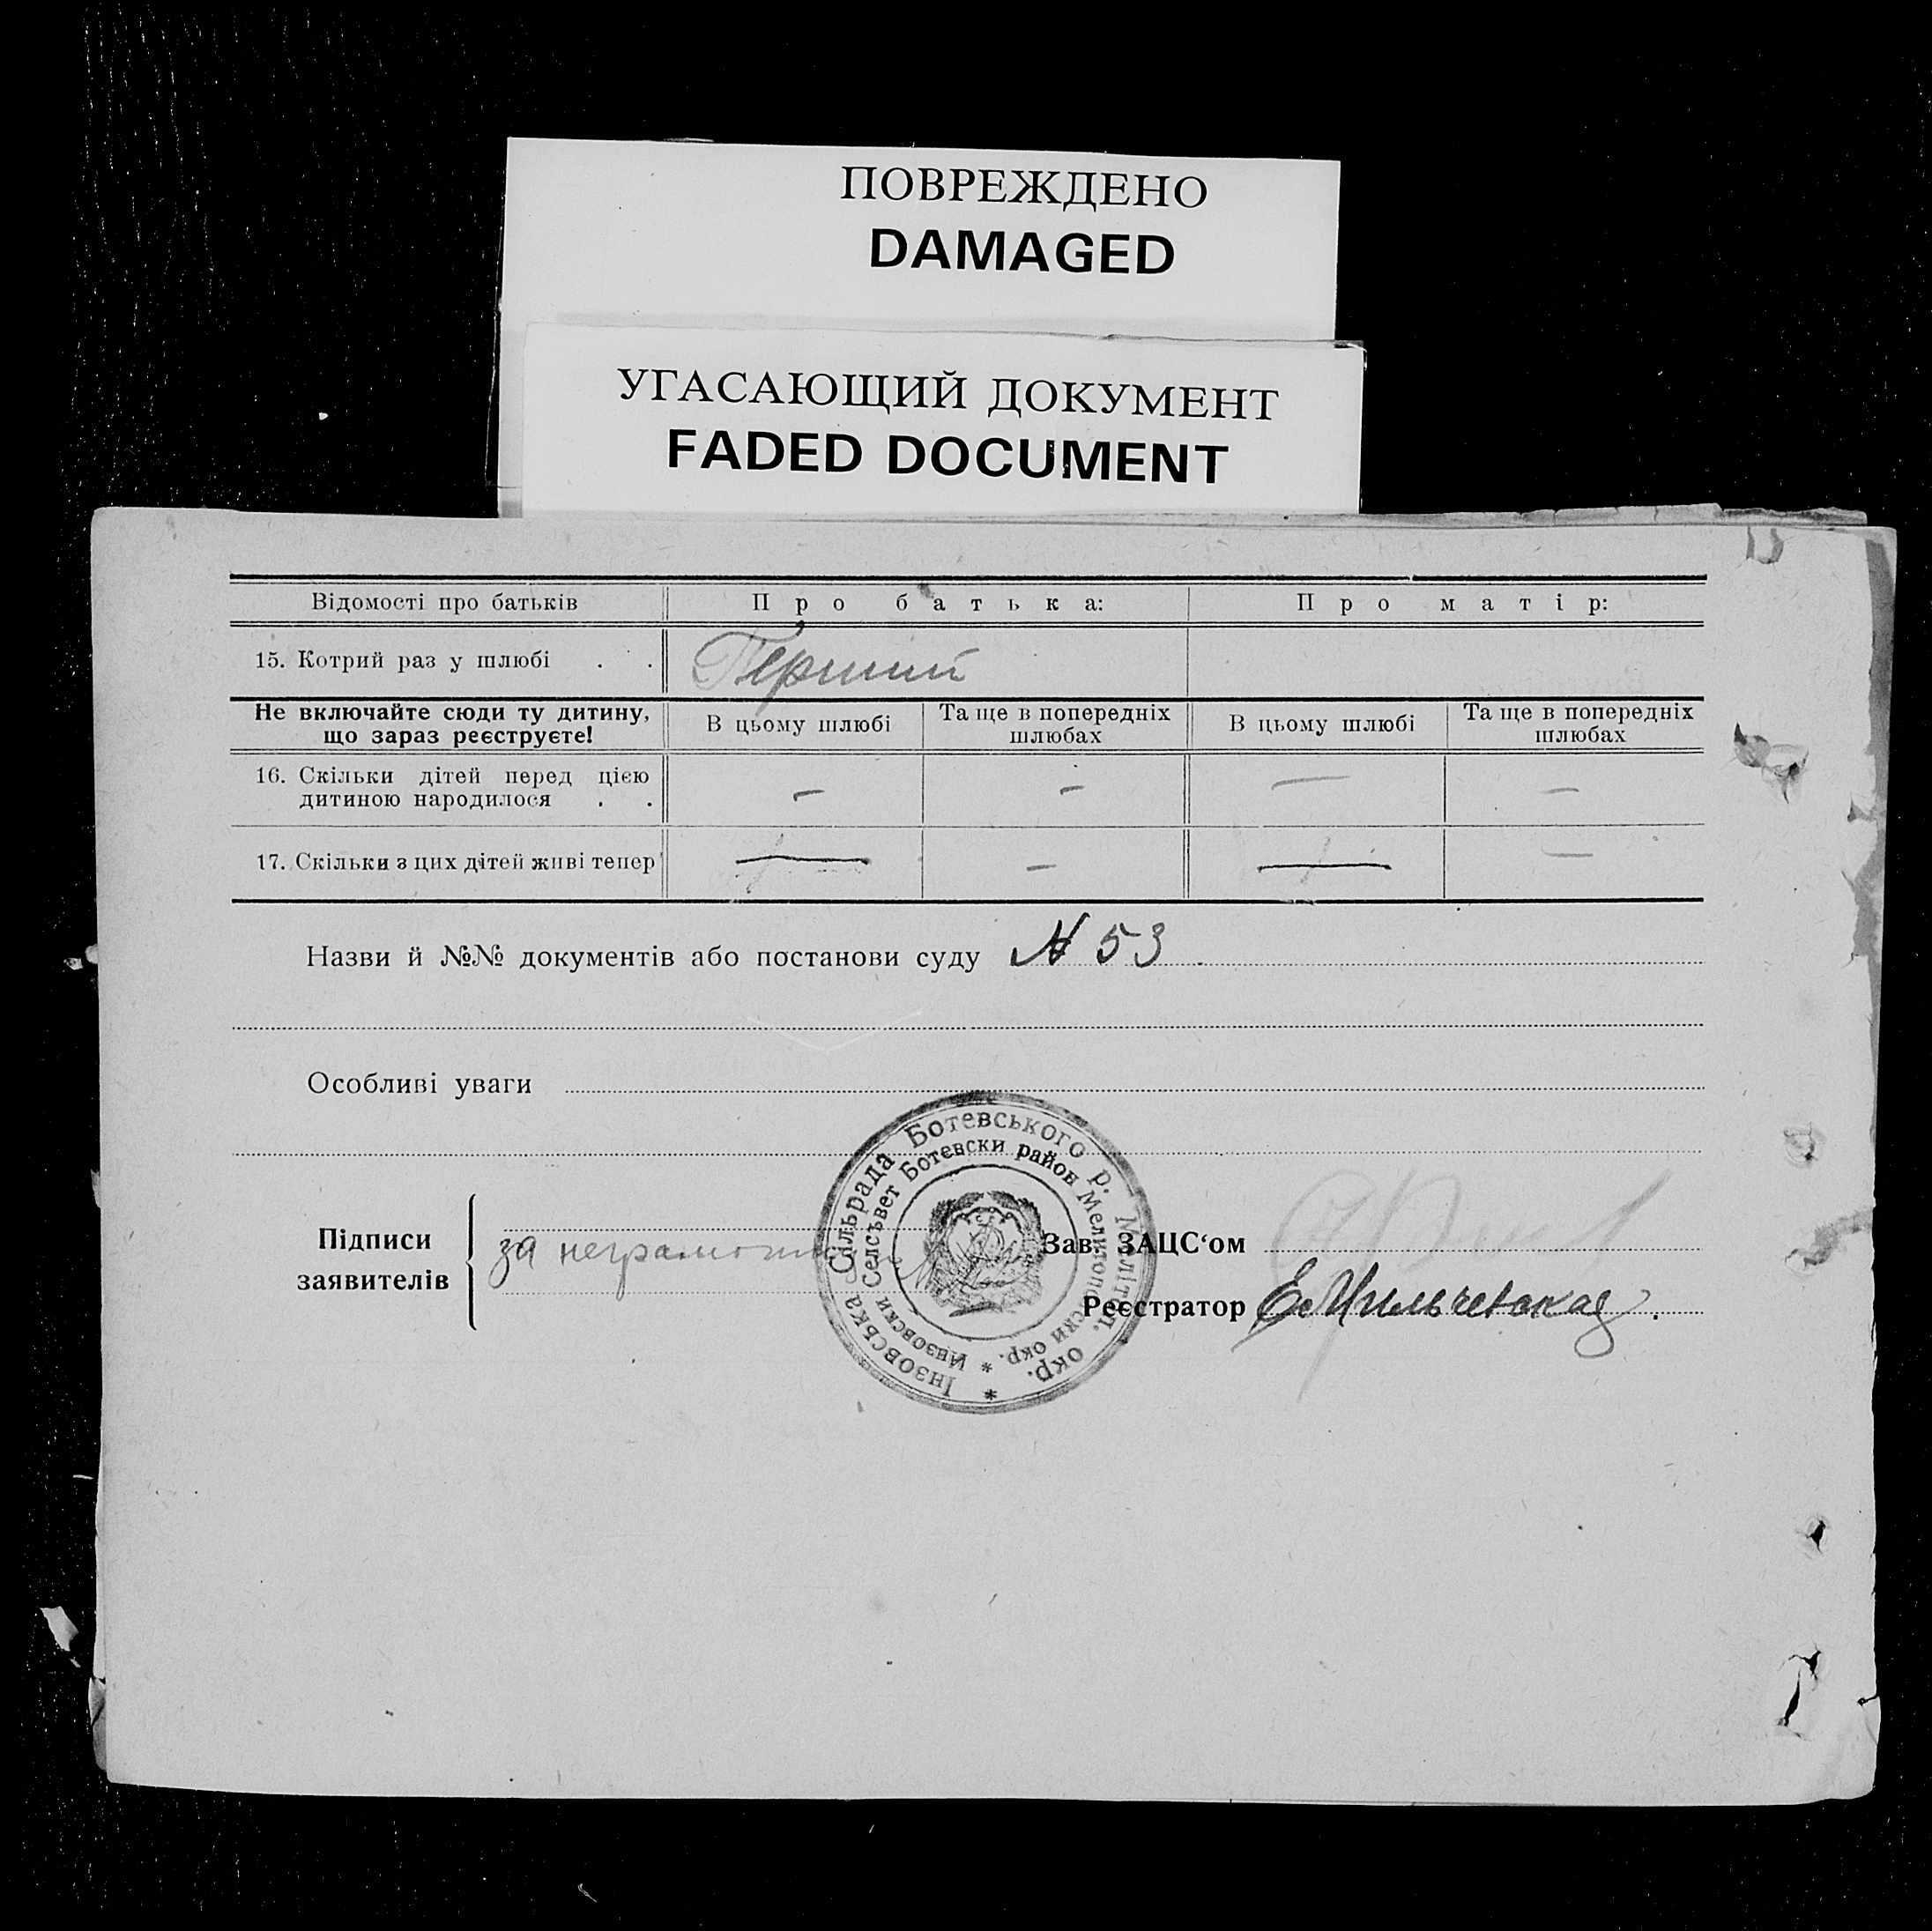 ПОВРЕЖДЕНО
DAMAGED
УГАСАЮЩИЙ ДОКУМЕНТ
FADED DOCUMENT
Відомості про батьків Про батька: Про матір:
15. Котрий раз у шлюбі . . Перший
Не включайте сюди ту дитину, що зараз реєструєте! В цьому шлюбі Та ще в попередніх шлюбах В цьому шлюбі Та ще в попередніх шлюбах
16. Скільки дітей перед цією дитиною народилося . . — — — —
17. Скільки з цих дітей живі тепер — — — —
Назви й №№ документів або постанови суду N 53
Особливі уваги
Інзовська Сільрада Ботевського р. Мелітоп. окр. *
Инзовски Селсъвет Ботевски район Мелитополски окр. *
Підписи заявителів
за
Зав. ЗАЦС‘ом
Реєстратор